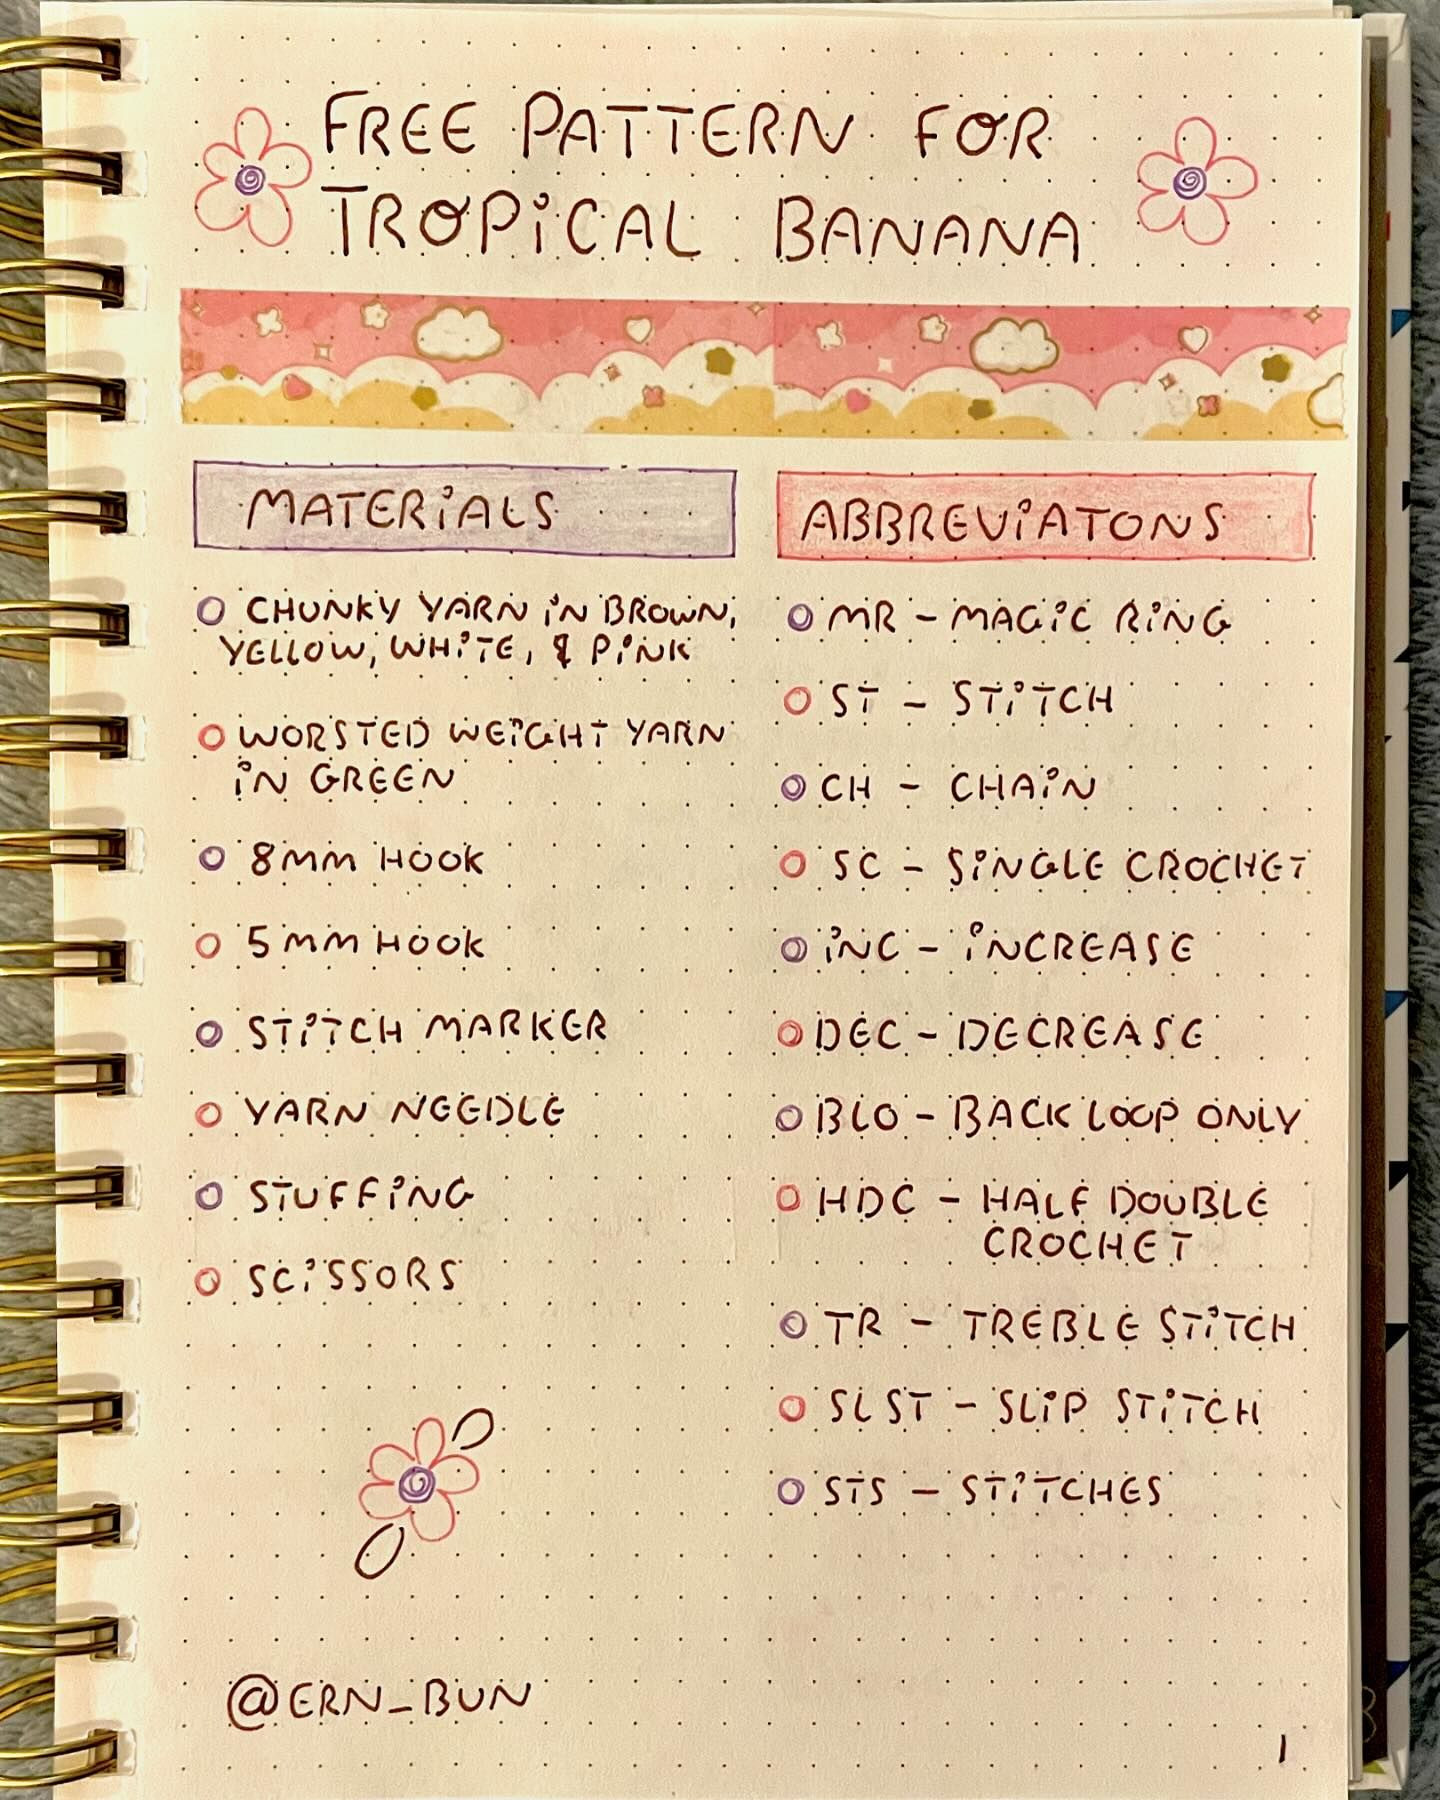 FREE PATTERN FOR
TROPiCAL BANANA
MATERiALS
CHUNKY YARN iN BROWN,
YELLOW, WHiTE, & PiNK
WORSTED WEiGHT YARN
iN GREEN
8MM HOOK
5MM HOOK
STiTCH MARKER
YARN NEEDLE
STUFFiNG
SCiSSORS
@ERN_BUN
ABBREViATONS
MR - MAGiC RiNG
ST - STiTCH
CH - CHAiN
SC - SiNGLE CROCHET
iNC - iNCREASE
DEC - DECREASE
BLO - BACK LOOP ONLY
HDC - HALF DOUBLE
CROCHET
TR - TREBLE STiTCH
SLST - SLiP STiTCH
STS - STiTCHES
1